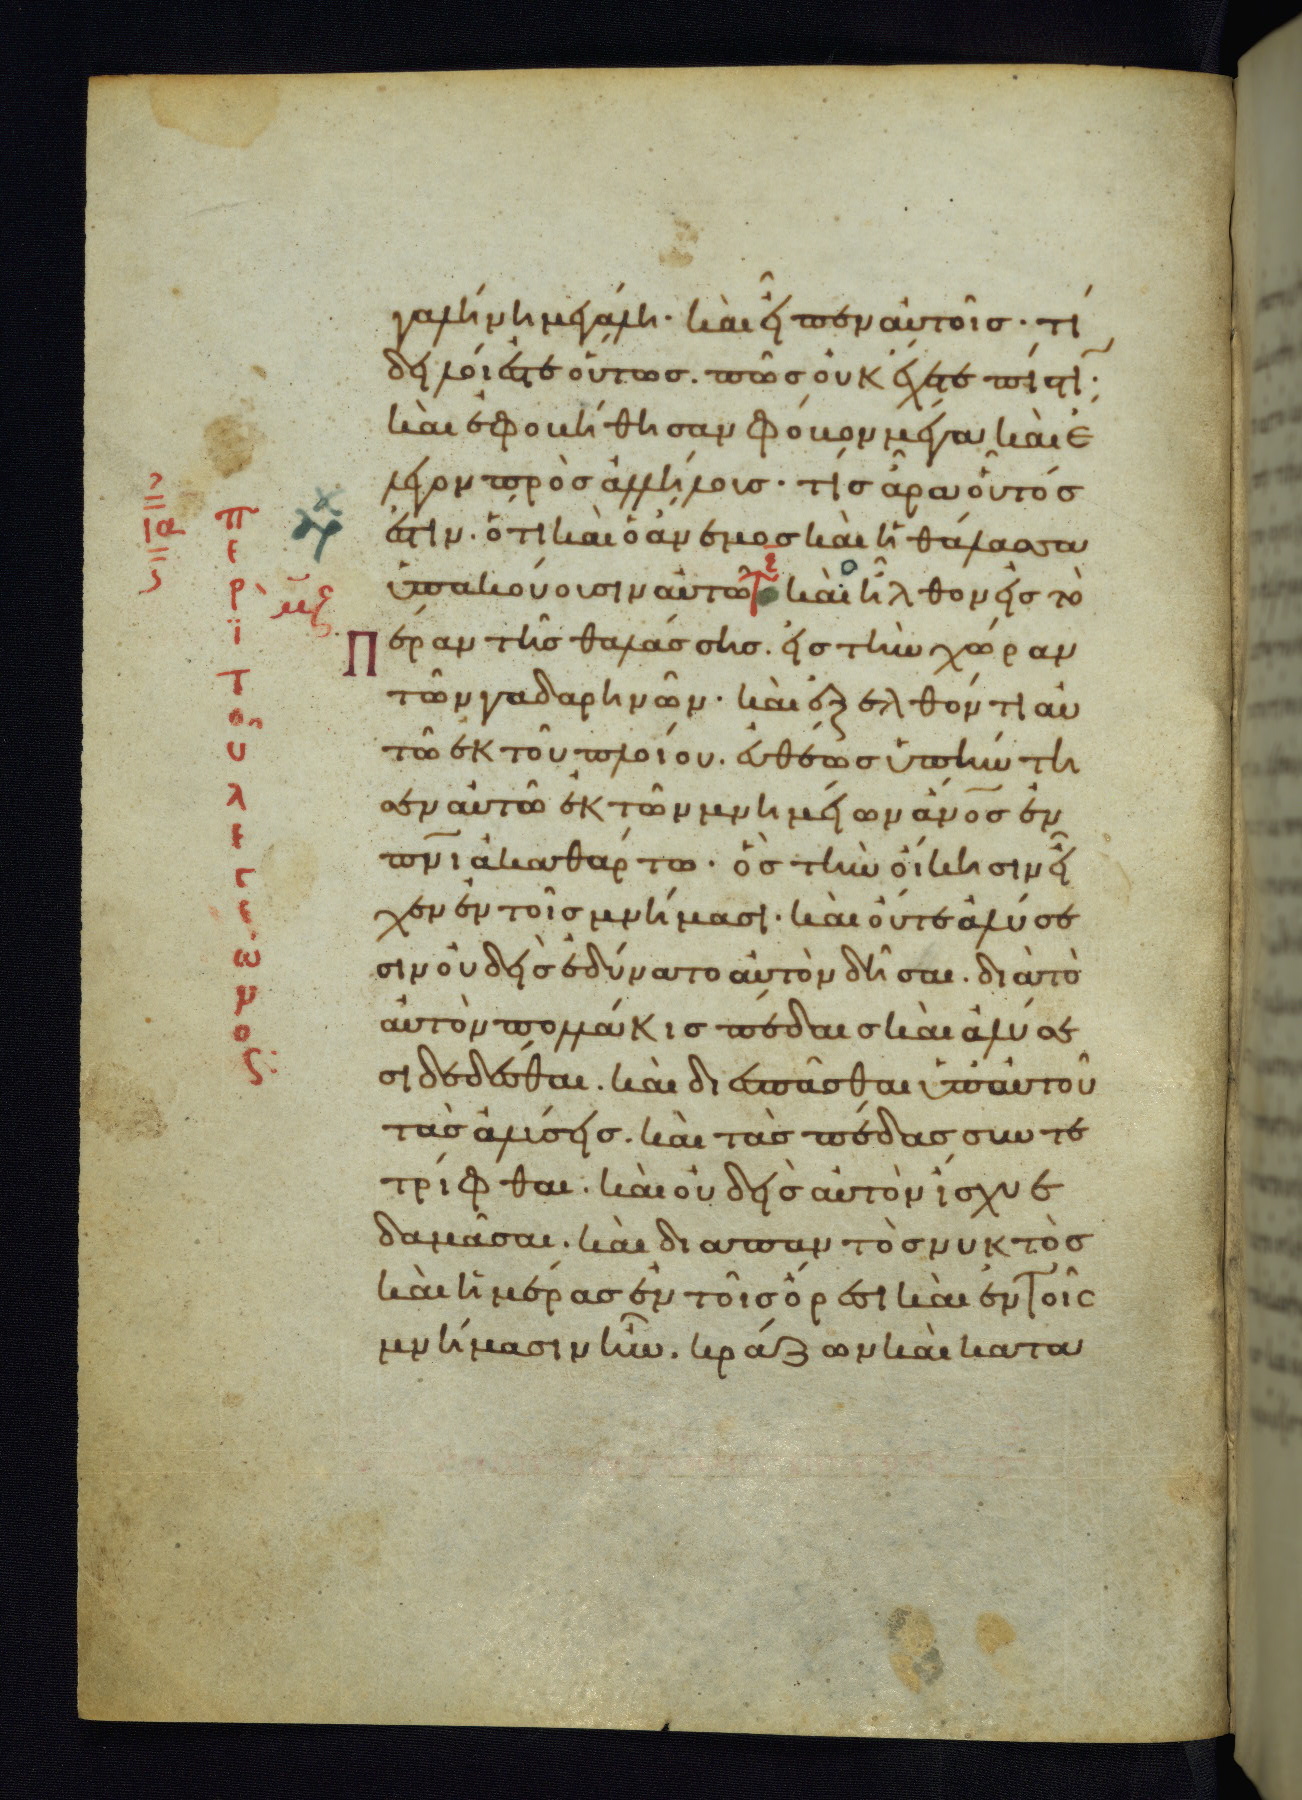 γαλήνη μεγάλη· καὶ εἶπεν αὐτοῖσ· τί
δειλοί ἐστε οὕτωσ. πῶσ οὐκ ἔχετε πίστι̅;
καὶ ἐφοβήθησαν φόβον μέγαν καὶ ἔ
λεγον πρὸσ ἀλλήλουσ· τίσ ἄρα οὗτόσ
ἐστιν. ὅτι καὶ ὁ ἄνεμοσ καὶ ἡ θάλασσα
ὑπακούουσιν αὐτῶ καὶ ἦλθον εἰσ τὸ
Πέραν τῆσ θαλάσσησ. εἰσ τὴν χώραν
τῶν γαδαρηνῶν· καὶ ἐξελθόντι αὐ
τῶ ἐκ τοῦ πλοίου. εὐθέωσ ὑπήντη
σεν αὐτῶ ἐκ τῶν μνημείων ἄν̅ο̅σ̅ ἐν
π̅ν̅ι̅ ἀκαθάρτω· ὃσ τὴν οἴκησιν εἶ
χεν ἐν τοῖσ μνήμασι· καὶ οὔτε ἁλύσε
σιν οὐδεὶσ ἐδύνατο αὐτὸν δῆσαι. διὰ τὸ
αὐτὸν πολλάκισ πέδαισ καὶ ἁλύσε
σι δεδέσθαι. καὶ διεσπᾶσθαι ὑπ' αὐτοῦ
τὰσ ἁλύσεισ. καὶ τὰσ πέδασ συντε
τρίφθαι. καὶ οὐδεὶσ αὐτὸν ἴσχυε
δαμᾶσαι. καὶ διαπαντὸσ νυκτὸσ
καὶ ἡμέρασ ἐν τοῖσ ὄρεσι καὶ ἐν τοῖς
μνήμασιν ἦν. κράζων καὶ κατα
περὶ τοῦ λεγεῶνος:
μζ